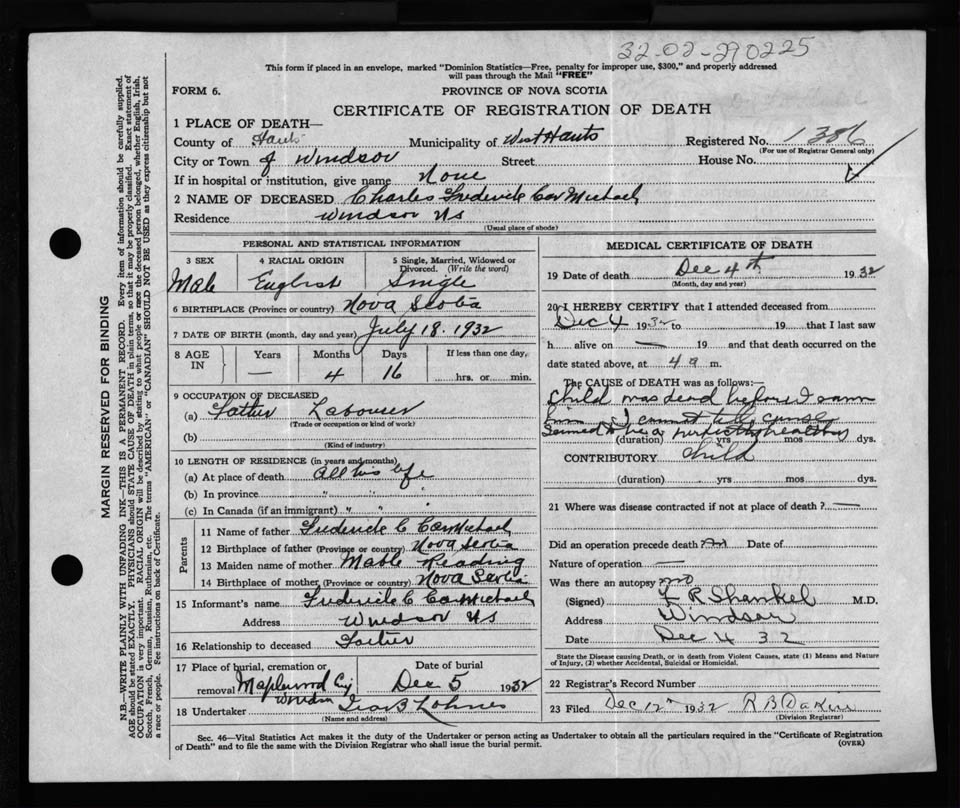 32-02-290225
This form if placed in an envelope, marked "Dominion Statistics—Free, penalty for improper use, $300," and properly addressed
will pass through the Mail "FREE"
FORM 6.
PROVINCE OF NOVA SCOTIA
CERTIFICATE OF REGISTRATION OF DEATH
1 PLACE OF DEATH—
County of Hants Municipality of West Hants Registered No. 1386
(For use of Registrar General only)
City or Town of Windsor Street House No.
If in hospital or institution, give name None
2 NAME OF DECEASED Charles Frederick CarMichael
Residence Windsor NS
(Usual place of abode)
MARGIN RESERVED FOR BINDING
N.B.—WRITE PLAINLY WITH UNFADING INK—THIS IS A PERMANENT RECORD. Every item of information should be carefully supplied.
AGE should be stated EXACTLY. PHYSICIANS should STATE CAUSE OF DEATH in plain terms, so that it may be properly classified. Exact statement of
OCCUPATION is very important. RACIAL ORIGIN will be described by stating to what people or race the deceased person belonged, whether English, Irish,
Scotch, French, German, Russian, Ruthenian, etc. The terms "AMERICAN" or "CANADIAN" SHOULD NOT BE USED as they express citizenship but not
a race or people. See instructions on back of Certificate.
PERSONAL AND STATISTICAL INFORMATION
3 SEX
Male
4 RACIAL ORIGIN
English
5 Single, Married, Widowed or
Divorced. (Write the word)
Single
6 BIRTHPLACE (Province or country) Nova Scotia
7 DATE OF BIRTH (month, day and year) July 18. 1932
8 AGE IN
Years Months Days If less than one day,
— 4 16 hrs. or min.
9 OCCUPATION OF DECEASED
(a) Father Labourer
(Trade or occupation or kind of work)
(b)
(Kind of industry)
10 LENGTH OF RESIDENCE (in years and months)
(a) At place of death All his life
(b) In province " " "
(c) In Canada (if an immigrant) " " "
Parents
11 Name of father Frederick C CarMichael
12 Birthplace of father (Province or country) Nova Scotia
13 Maiden name of mother Mable Reading
14 Birthplace of mother (Province or country) Nova Scotia
15 Informant's name Frederick C CarMichael
Address Windsor NS
16 Relationship to deceased Father
17 Place of burial, cremation or removal Maplewood Cy Windsor
Date of burial
Dec 5 1932
18 Undertaker Geo B Lohnes
(Name and address)
MEDICAL CERTIFICATE OF DEATH
19 Date of death Dec 4th 1932
(Month, day and year)
20 I HEREBY CERTIFY that I attended deceased from
Dec 4 1932 to 19 that I last saw
h alive on — 19 and that death occurred on the
date stated above, at 4 a m.
The CAUSE OF DEATH was as follows:—
Child was dead before I saw
him I cannot tell cause
Seemed to be a perfectly healthy
(duration) yrs mos dys.
CONTRIBUTORY child
(duration) yrs mos dys.
21 Where was disease contracted if not at place of death? —
Did an operation precede death? no Date of
Nature of operation —
Was there an autopsy no
(Signed) R Shankel M.D.
Address Windsor
Date Dec 4 32
State the Disease causing Death, or in death from Violent Causes, state (1) Means and Nature
of Injury, (2) whether Accidental, Suicidal or Homicidal.
22 Registrar's Record Number
23 Filed Dec 12th 1932 R B Dakin
(Division Registrar)
Sec. 46—Vital Statistics Act makes it the duty of the Undertaker or person acting as Undertaker to obtain all the particulars required in the "Certificate of Registration
of Death" and to file the same with the Division Registrar who shall issue the burial permit.
(OVER)